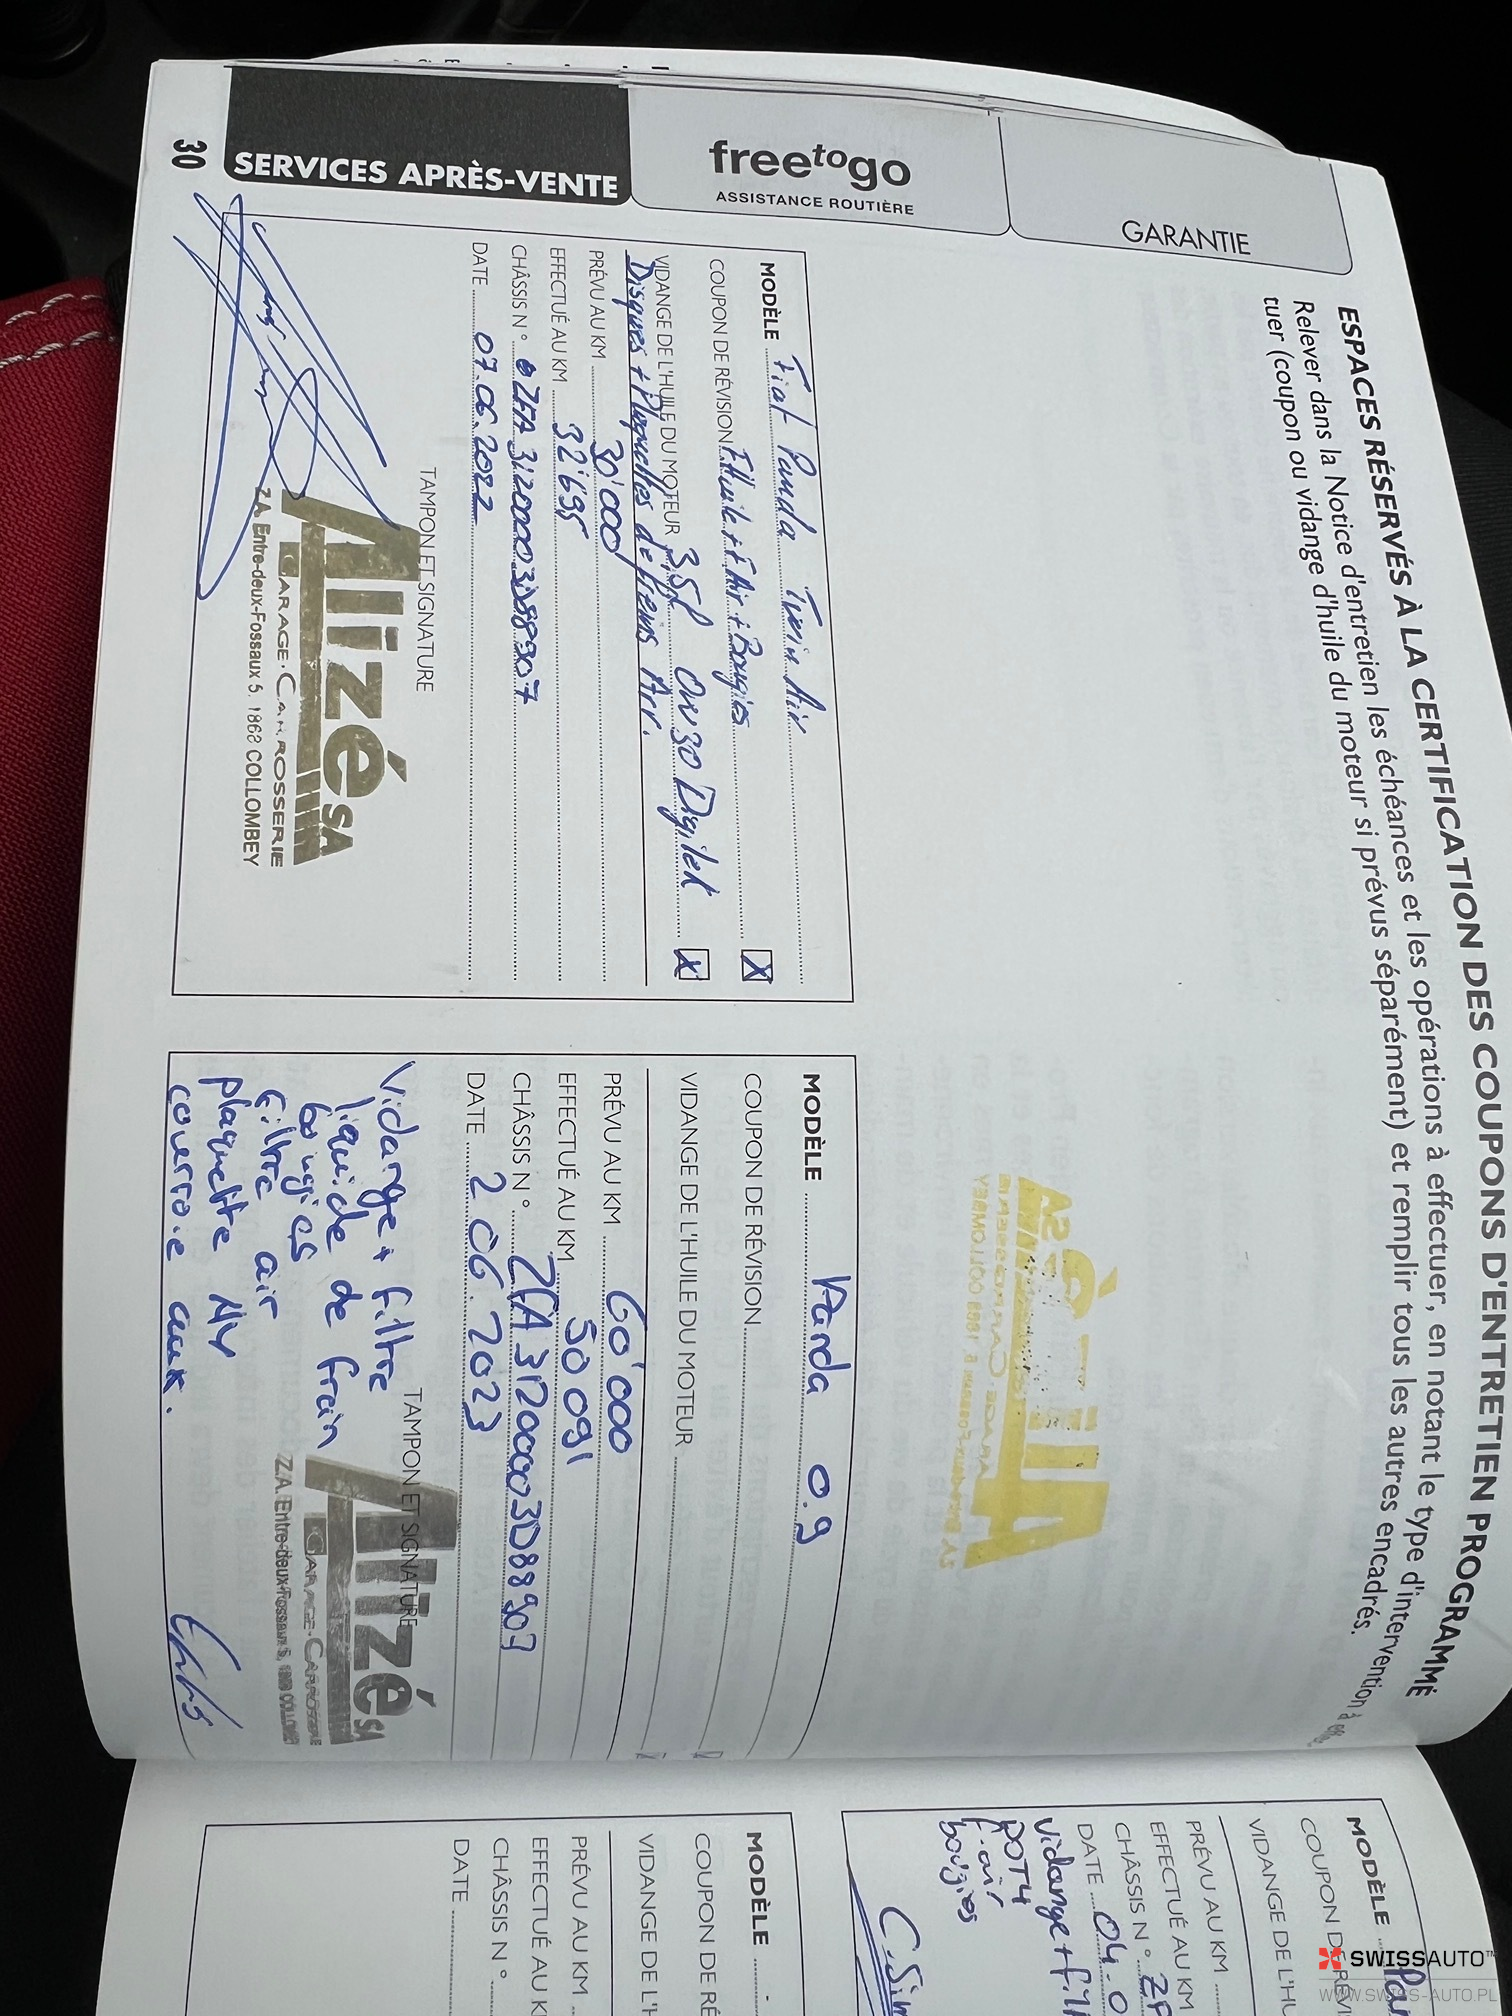 30
SERVICES APRÈS-VENTE
freetogo
ASSISTANCE ROUTIÈRE
GARANTIE
ESPACES RÉSERVÉS À LA CERTIFICATION DES COUPONS D'ENTRETIEN PROGRAMMÉ
Relever dans la Notice d'entretien les échéances et les opérations à effectuer, en notant le type d'intervention à
tuer (coupon ou vidange d'huile du moteur si prévus séparément) et remplir tous les autres encadrés.
MODÈLE Fiat Panda Twin Air
COUPON DE RÉVISION F.Huile + F.Air + Bougies X
VIDANGE DE L'HUILE DU MOTEUR 3,5l 0W30 Digitek X
Disques + Plaquettes de freins Arr.
PRÉVU AU KM 30'000
EFFECTUÉ AU KM 32'695
CHÂSSIS N° ZFA3120003D88907
DATE 07.06.2022
TAMPON ET SIGNATURE
Alizé SA
GARAGE-CARROSSERIE
Z.A. Entre-deux-Fossaux 5, 1868 COLLOMBEY
MODÈLE Panda 0.9
COUPON DE RÉVISION
VIDANGE DE L'HUILE DU MOTEUR
PRÉVU AU KM 60'000
EFFECTUÉ AU KM 50091
CHÂSSIS N° ZFA3120003D88907
DATE 2.06.2023
TAMPON ET SIGNATURE
Vidange + filtre
liquide de frein
bougies
filtre air
plaquette AV
courroie aux.
Alizé SA
GARAGE-CARROSSERIE
Z.A. Entre-deux-Fossaux 5,
MODÈLE
COUPON DE
VIDANGE DE L'HU
PRÉVU AU KM
EFFECTUÉ AU KM
CHÂSSIS N°
DATE 04.0
vidange +
POT4
f.air
bougies
MODÈLE
COUPON DE RÉ
VIDANGE DE L'H
PRÉVU AU KM
EFFECTUÉ AU K
CHÂSSIS N°
DATE
SWISSAUTO™
WWW.SWISS-AUTO.PL